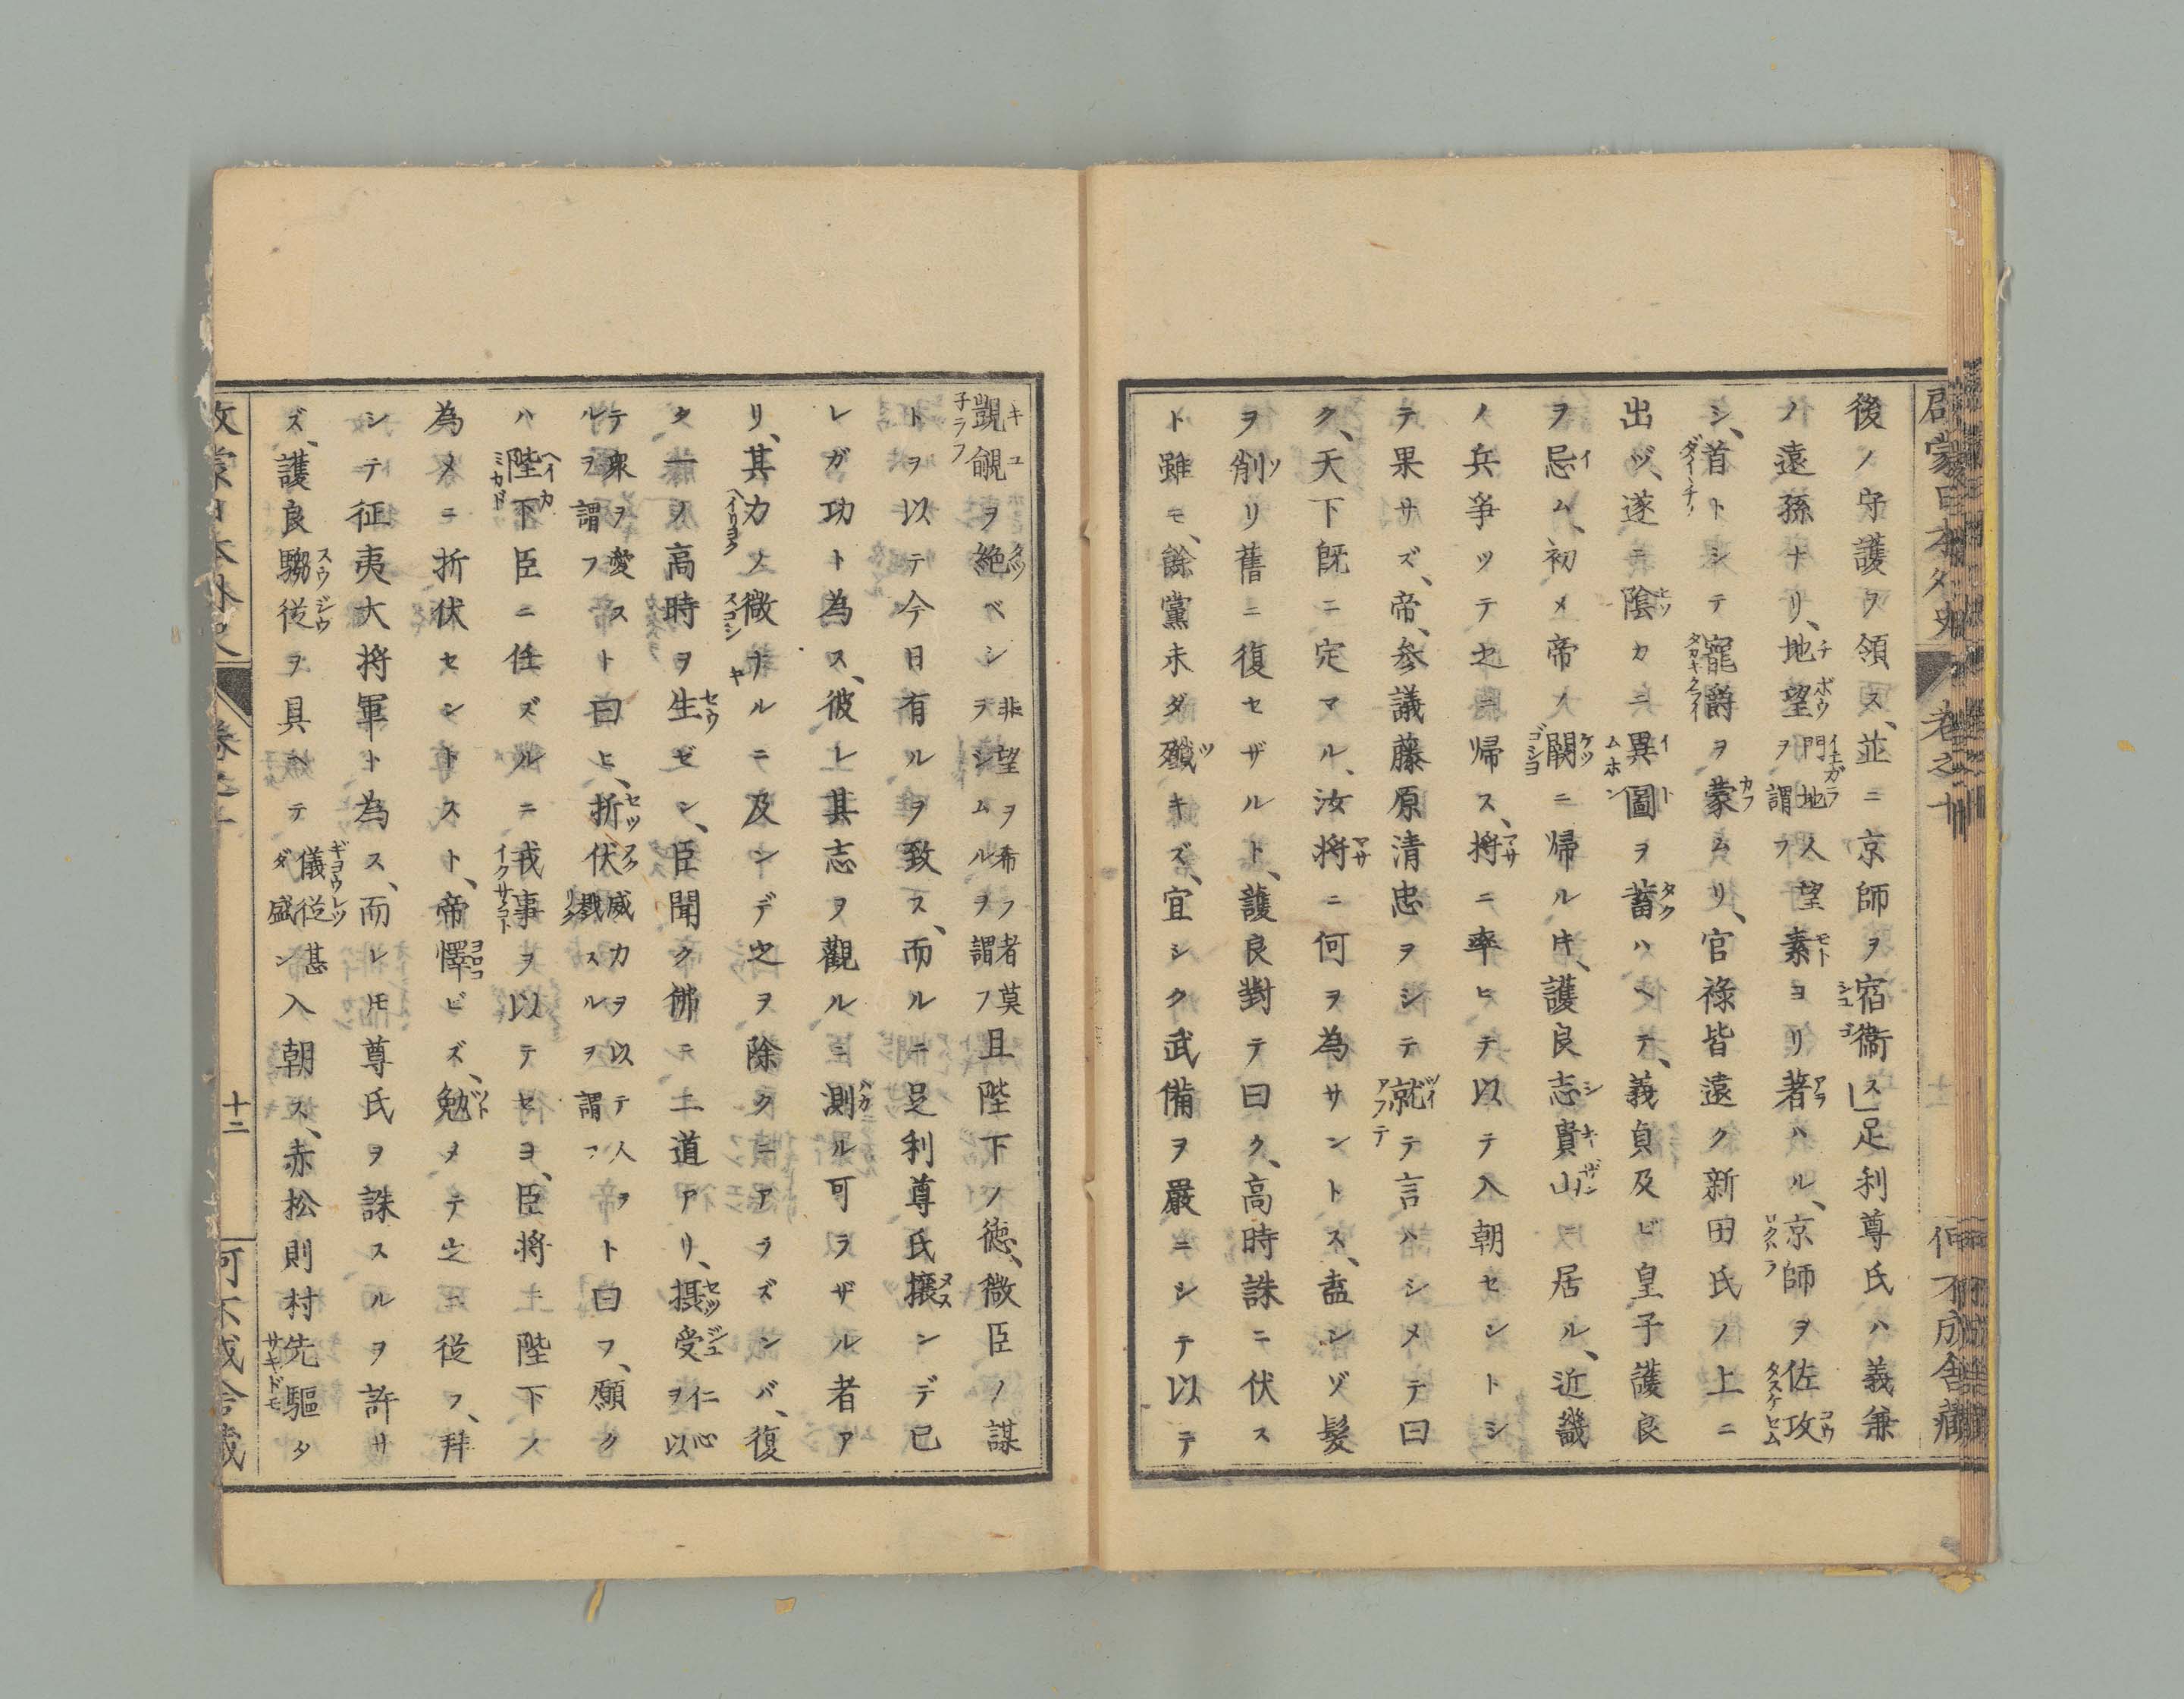 後ノ守護ヲ領ス、並ニ京師ヲ宿衞ス」足利尊氏ハ義兼
ノ遠孫ナリ、地望ヲ謂フ門地人望素ヨリ著ハル、京師ヲ佐攻
シ、首トシテ寵爵ヲ蒙ムリ、官祿皆遠ク新田氏ノ上ニ
出ヅ、遂ニ陰カニ異圖ヲ蓄ハヘテ、義貞及ビ皇子護良
ヲ忌ム、初メ帝ノ闕ニ帰ル㆑、護良志貴山ニ居ル、近畿
ノ兵爭ツテ之ニ帰ス、将ニ率ヒテ以テ入朝セントシ
テ果サズ、帝、參議藤原清忠ヲシテ就テ言ハシメテ曰
ク、天下既ニ定マル、汝将ニ何ヲ為サントス、盍ンゾ髮
ヲ削リ舊ニ復セザルト、護良對テ曰ク、高時誅ニ伏ス
ト雖モ、餘黨未ダ殱キズ、宜シク武備ヲ嚴ニシテ以テ
覬覦ヲ絶ベシ非望ヲ希フ者ヲシ莫ムルヲ謂フ且陛下ノ徳、微臣ノ謀
トヲ以テ今日有ルヲ致ス、而ルニ足利尊氏攘ンデ已
レガ功ト為ス、彼レ其志ヲ觀ルニ測ル可ラザル者ア
リ、其力ノ微ナルニ及ンデ之ヲ除クニアラズンバ、復
タ一ノ高時ヲ生ゼン、臣聞ク佛ニ二道アリ、摂受仁心ヲ以
テ衆ヲ愛スルヲ謂フト曰ヒ、折伏威力ヲ以テ人ヲ戮スルヲ謂フト曰フ、願ク
ハ陛下臣ニ任ズルニ戎事ヲ以テセヨ、臣将ニ陛下ノ
為メニ折伏セントスト、帝懌ビズ、勉メテ之ニ從フ、拜
シテ征夷大将軍ト為ス、而レ𪜈尊氏ヲ誅スルヲ許サ
ズ、護良騶從ヲ具ヘテ儀從甚ダ盛ン入朝ス、赤松則村先驅タ
卷之十
十二